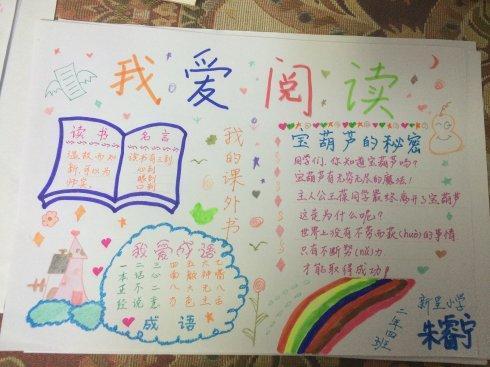 我爱阅读
读书名言
温故而知
新,可以为
师矣。
读书有三到
心到
眼到
口到
我的课外书
宝葫芦的秘密
同学们,你知道宝葫芦吗?
宝葫芦有无穷无尽的魔法!
主人公王葆同学最终离开了宝葫芦
这是为什么呢?
世界上没有不劳而获(huò)的事情
只有不断努(nǔ)力
才能取得成功!
我爱成语
一二三四五六七
本话心面颜神嘴
正不二八六无八
经说意方色主舌
成语
新星小学
二年四班
朱睿宁